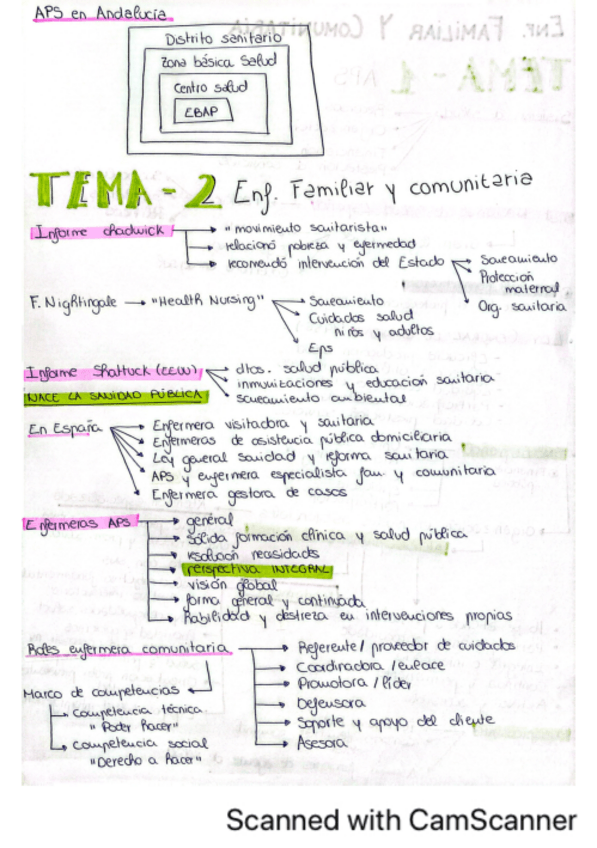 APS en Andalucía
Distrito sanitario
Zona básica Salud
Centro salud
EBAP
TEMA - 2 Enf. Familiar y comunitaria
Informe chadwick → "movimiento sanitarista"
→ relacionó pobreza y enfermedad
→ recomendó intervención del Estado → Saneamiento
Protección maternal
Org. sanitaria
F. Nightingale → "Health Nursing" → Saneamiento
Cuidados salud niños y adultos
Eps
Informe Shattuck (EEUU) → dtos. salud pública
NACE LA SANIDAD PÚBLICA
inmunizaciones y educación sanitaria
saneamiento ambiental
En España → Enfermera visitadora y sanitaria
Enfermeras de asistencia pública domiciliaria
Ley general sanidad y reforma sanitaria
APS y enfermera especialista fam. y comunitaria
Enfermera gestora de casos
Enfermeras APS → general
→ sólida formación clínica y salud pública
→ resolución necesidades
→ perspectiva INTEGRAL
→ visión global
→ forma general y continuada
→ habilidad y destreza en intervenciones propias
Roles enfermera comunitaria → Referente / proveedor de cuidados
→ Coordinadora / enlace
→ Promotora / líder
→ Defensora
→ Soporte y apoyo del cliente
→ Asesora
Marco de competencias
→ Competencia técnica
"Poder hacer"
→ Competencia social
"Derecho a hacer"
Scanned with CamScanner